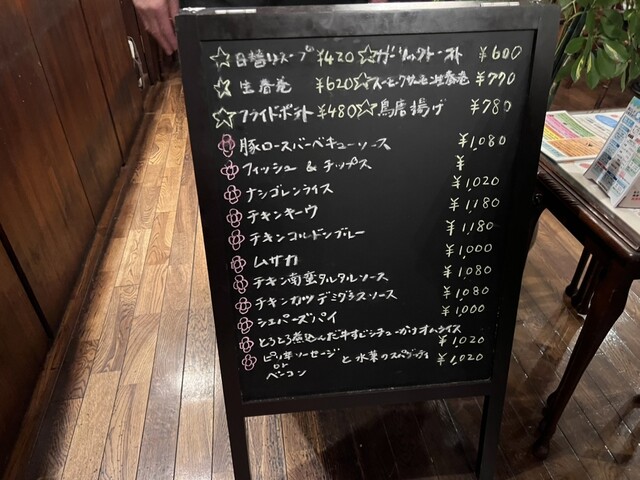 ☆日替りスープ ¥420 ☆ガーリックトースト ¥600
☆生春巻 ¥620 ☆スモークサーモン生春巻 ¥770
☆フライドポテト ¥480 ☆鳥唐揚げ ¥780
豚ロースバーベキューソース ¥1,080
フィッシュ & チップス ¥
ナシゴレンライス ¥1,020
チキンキーウ ¥1,180
チキンコルドンブルー ¥1,180
ムサカ ¥1,000
チキン南蛮タルタルソース ¥1,080
チキンカツデミグラスソース ¥1,080
シェパーズパイ ¥1,000
とろとろ煮込んだ牛すじシチューがけオムライス ¥1,020
ピリ辛ソーセージ or ベーコン と水菜のスパゲッティ ¥1,020